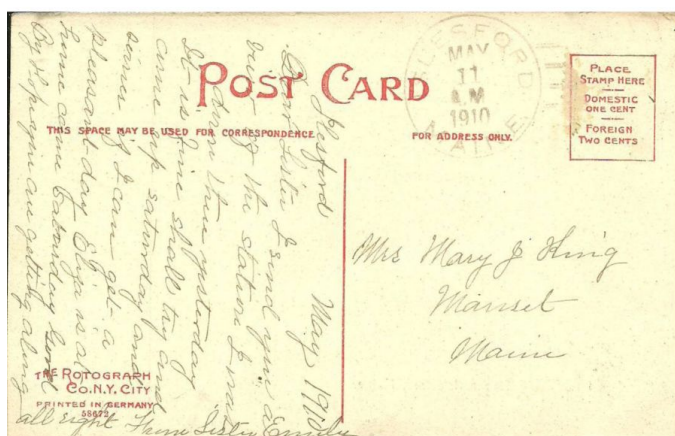 POST CARD
THIS SPACE MAY BE USED FOR CORRESPONDENCE
FOR ADDRESS ONLY.
ISLESFORD
MAY
11
A.M
1910
MAINE
PLACE
STAMP HERE
DOMESTIC
ONE CENT
FOREIGN
TWO CENTS
Islesford May 1910
Dear Sister I send you a
view of the station I was
down thire yesterday
It is fine shall try and
come up saturday and
sooner if I can get a
pleasant day Eliza is at
home came saturday
By By hope you are getting along
all right From Sister Emily
Mrs Mary J King
Manset
Maine
THE ROTOGRAPH
CO. N.Y. CITY
PRINTED IN GERMANY
58672